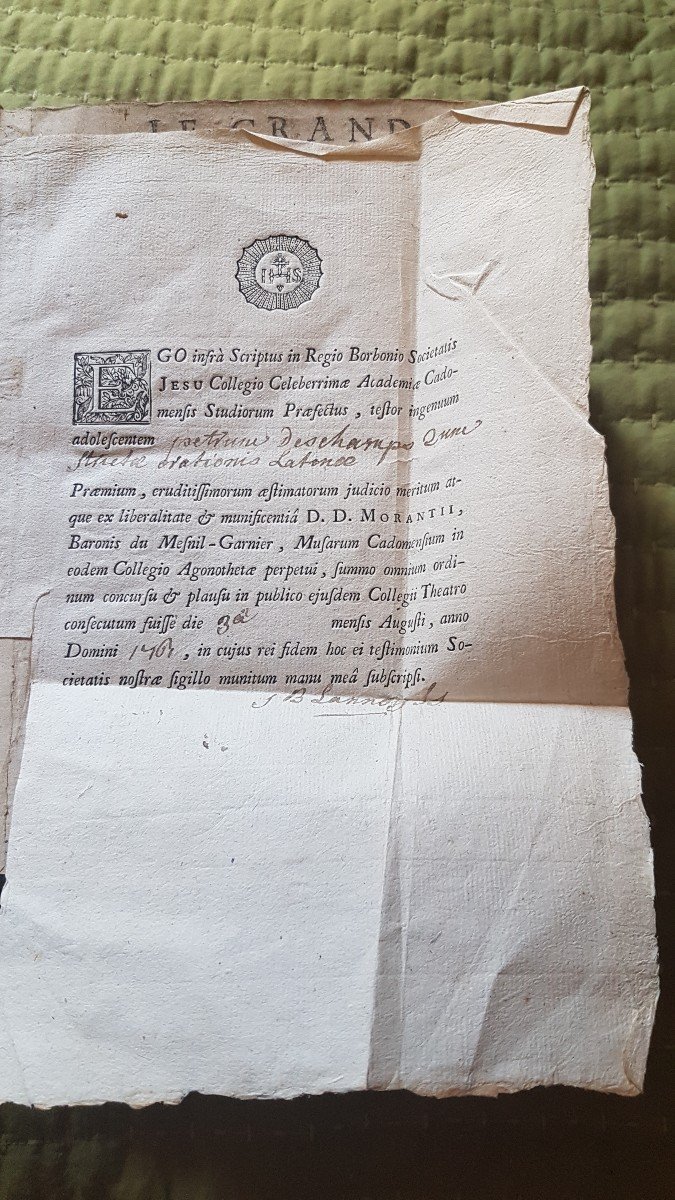 LE GRAND
IHS
EGO infrà Scriptus in Regio Borbonio Societatis
JESU Collegio Celeberrimæ Academiæ Cado-
mensis Studiorum Præfectus, teſtor ingenuum
adoleſcentem petrum Deschamps
strictæ orationis Latinæ
Præmium, eruditiſſimorum æſtimatorum judicio meritum at-
que ex liberalitate & munificentiâ D. D. MORANTII,
Baronis du Meſnil-Garnier, Muſarum Cadomenſium in
eodem Collegio Agonothetæ perpetui, ſummo omnium ordi-
num concurſu & plauſu in publico ejuſdem Collegii Theatro
conſecutum fuiſſe die 3â menſis Auguſti, anno
Domini 1761, in cujus rei fidem hoc ei teſtimonium So-
cietatis noſtræ ſigillo munitum manu meâ ſubſcripſi.
J B